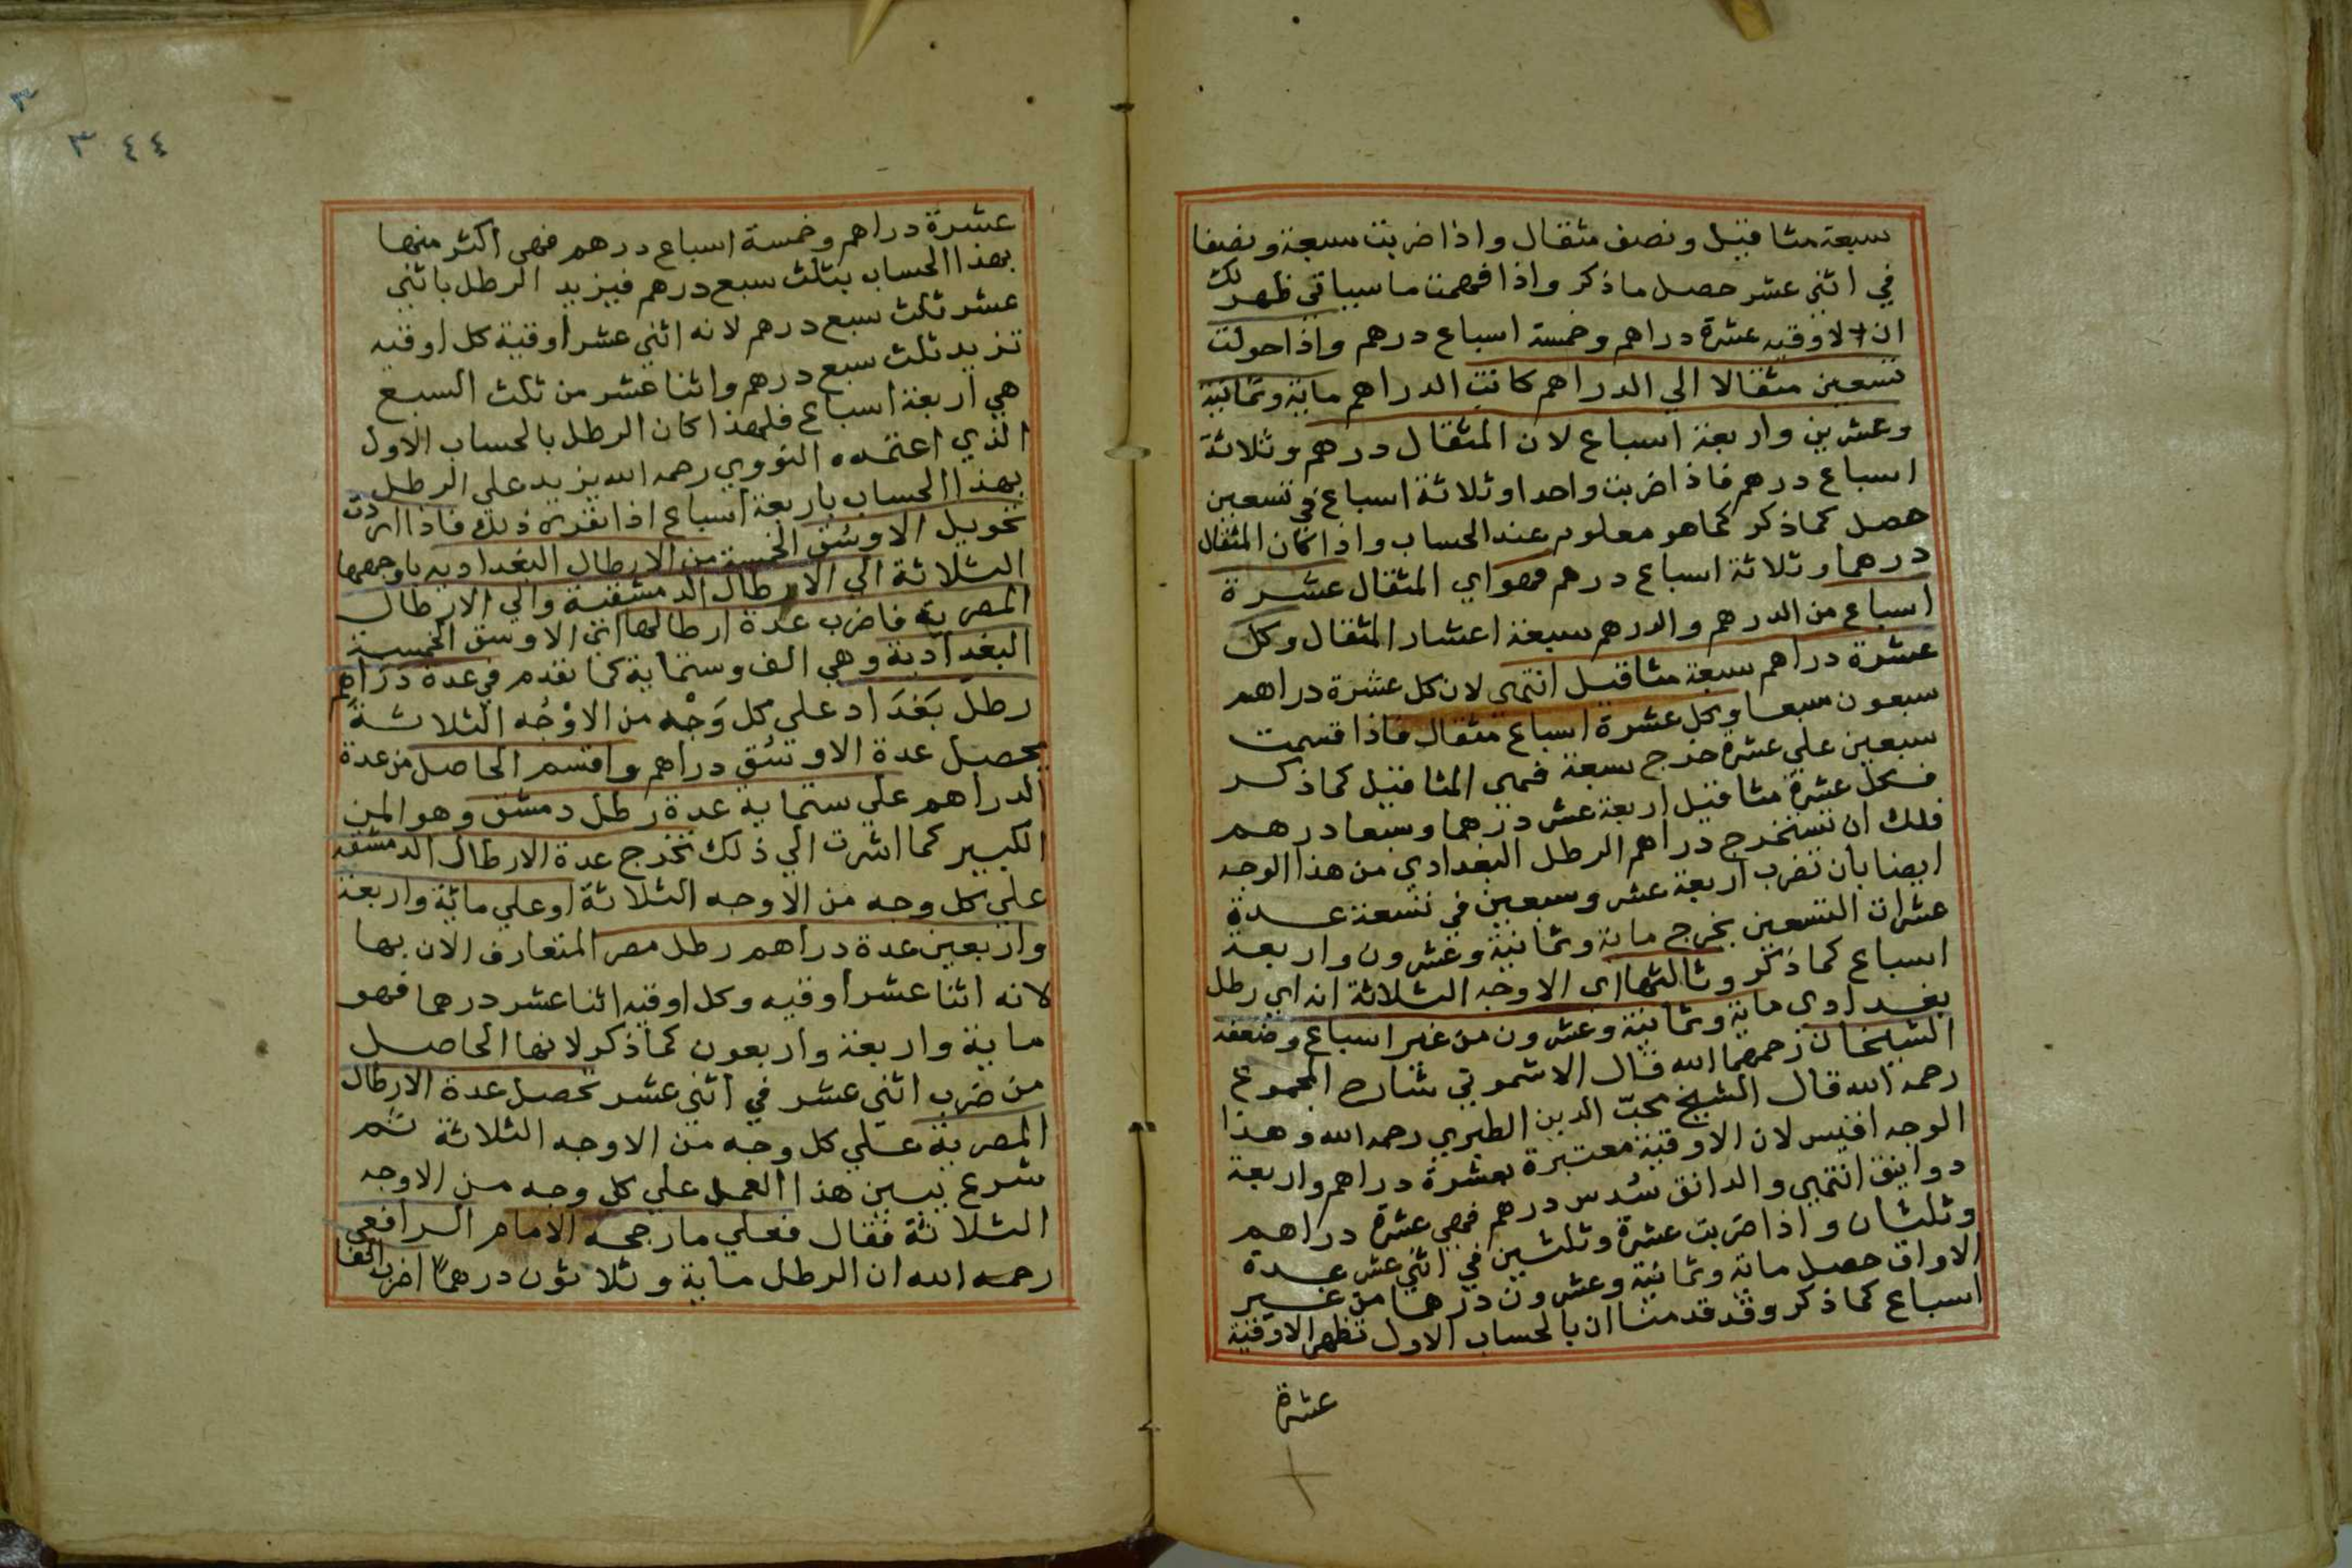 سبعة مثاقيل ونصف مثقال واذا ضربت سبعة ونصفا
في اثني عشر حصل ما ذكر واذا فهمت ما سياتي ظهر لك
ان الاوقيه عشرة دراهم وخمسة اسباع درهم واذا حولت
تسعين مثقالا الي الدراهم كانت الدراهم ماية وثمانية
وعشرين واربعة اسباع لان المثقال درهم وثلاثة
اسباع درهم فاذا ضربت واحدا وثلاثة اسباع في تسعين
حصل كما ذكر كما هو معلوم عند الحساب واذا كان المثقال
درهما وثلاثة اسباع درهم فهو اي المثقال عشرة
اسباع من الدرهم والدرهم سبعة اعشار المثقال وكل
عشرة دراهم سبعة مثاقيل انتهي لان كل عشرة دراهم
سبعون سبعا وكل عشرة اسباع مثقال فاذا قسمت
سبعين علي عشرة خرج سبعة فهي المثاقيل كما ذكر
فكل عشرة مثاقيل اربعة عشر درهما وسبعا درهم
فلك ان تستخرج دراهم الرطل البغدادي من هذا الوجه
ايضا بان تضرب اربعة عشر وسبعين في تسعة عدة
عشرات التسعين يخرج ماية وثمانية وعشرون واربعة
اسباع كما ذكر وثالثها اى الاوجه الثلاثة انه اي رطل
بغدادي ماية وثمانية وعشرون من غير اسباع وضعفه
الشيخان رحمهما الله قال الاشموني شارح المجموع
رحمه الله قال الشيخ محبّ الدين الطبري رحمه الله وهذا
الوجه اقيس لان الاوقية معتبرة بعشرة دراهم واربعة
دوانيق انتهي والدانق سُدس درهم فهي عشرة دراهم
وثلثان واذا ضربت عشرة وثلثين في اثني عشر عدة
الاواق حصل ماية وثمانية وعشرون درهما من غير
اسباع كما ذكر وقد قدمنا ان بالحساب الاول تظهر الاوقية
عشرة
٣
٣٤٤
عشرة دراهم وخمسة اسباع درهم فهى اكثر منها
بهذا الحساب بثلث سبع درهم فيزيد الرطل باثني
عشر ثلث سبع درهم لانه اثني عشر اوقية كل اوقيه
تزيد ثلث سبع درهم واثنا عشر من ثلث السبع
هي اربعة اسباع فلهذا كان الرطل بالحساب الاول
الذي اعتمده النووي رحمه الله يزيد علي الرطل
بهذا الحساب باربعة اسباع اذا تقرر ذلك فاذا اردت
تحويل الاوسُق الخمسة من الارطال البغداديه باوجهها
الثلاثة الي الارطال الدمشقية والي الارطال
المصرية فاضرب عدة ارطالها اى الاوسق الخمسة
البغدادية وهي الف وستماية كما تقدم في عدة دراهم
رطل بَغدَاد علي كل وَجْه من الاوْجُه الثلاثة
يحصل عدة الاوسُق دراهم واقسم الحاصل من عدة
الدراهم علي ستماية عدة رطل دمشق وهو المن
الكبير كما اشرت الي ذلك تخرج عدة الارطال الدمشقيه
علي كل وجه من الاوجه الثلاثة او علي مائة واربعة
واربعين عدة دراهم رطل مصر المتعارف الان بها
لانه اثنا عشر اوقيه وكل اوقيه اثنا عشر درهما فهو
ماية واربعة واربعون كما ذكر لانها الحاصل
من ضرب اثني عشر في اثني عشر تحصل عدة الارطال
المصرية علي كل وجه من الاوجه الثلاثة ثم
شرع يبين هذا العمل علي كل وجه من الاوجه
الثلاثة فقال فعلي ما رجحه الامام الرافعي
رحمه الله ان الرطل ماية وثلاثون درهمًا اضرب الفا